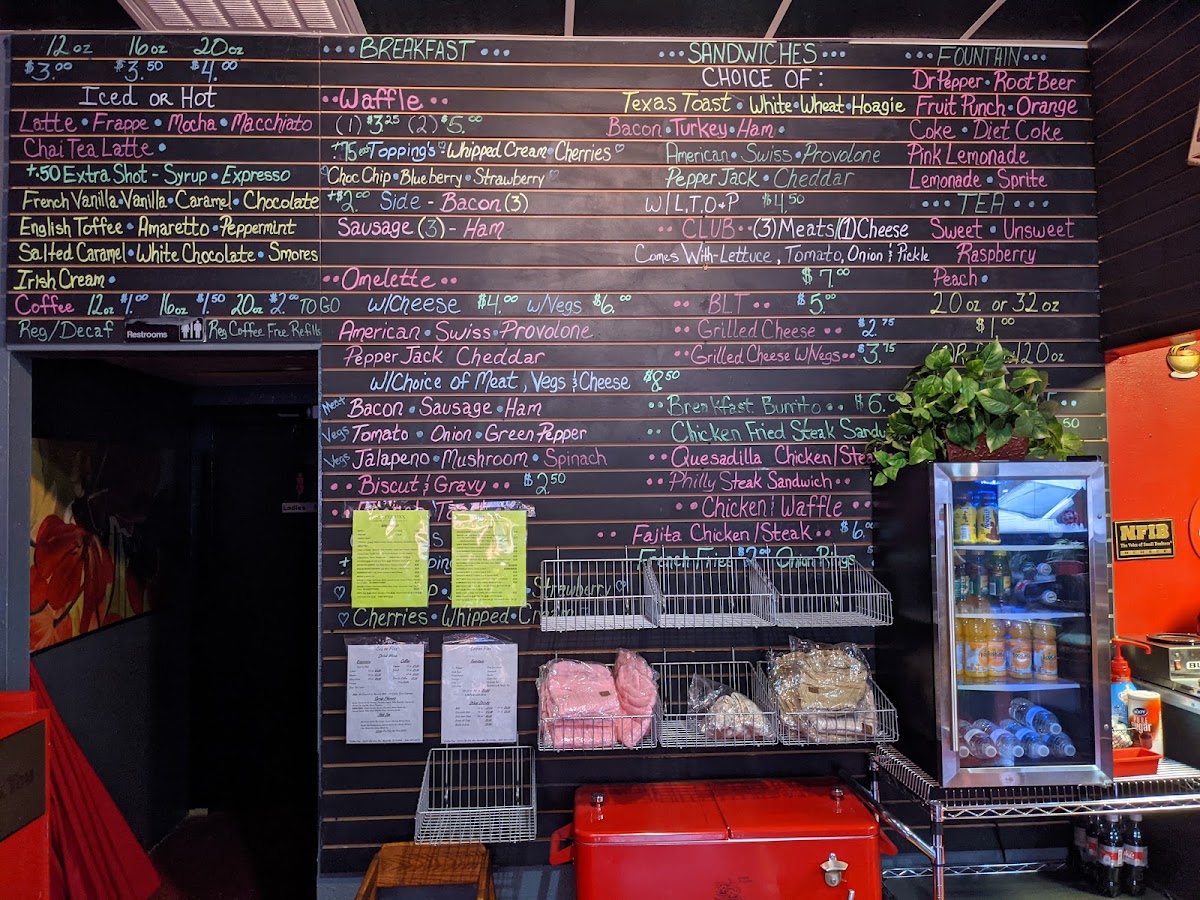 12oz 16oz 20oz
$3.00 $3.50 $4.00
Iced or Hot
Latte • Frappe • Mocha • Macchiato
Chai Tea Latte •
+.50 Extra Shot - Syrup • Expresso
French Vanilla • Vanilla • Caramel • Chocolate
English Toffee • Amaretto • Peppermint
Salted Caramel • White Chocolate • Smores
Irish Cream •
Coffee 12oz $1.00 16oz $1.50 20oz $2.00 TO GO
Reg/Decaf
Restrooms
Reg Coffee Free Refills
Ladies
••• BREAKFAST •••
•• Waffle ••
(1) $3.25 (2) $5.00
+.75 ea Topping's • Whipped Cream • Cherries
Choc Chip • Blueberry • Strawberry
+$2.00 Side - Bacon (3)
Sausage (3) - Ham
•• Omelette ••
w/Cheese $4.00 w/Vegs $6.00
American • Swiss • Provolone
Pepper Jack Cheddar
w/Choice of Meat, Vegs & Cheese $8.50
Meat Bacon • Sausage • Ham
Vegs Tomato • Onion • Green Pepper
Vegs Jalapeno • Mushroom • Spinach
•• Biscut & Gravy •• $2.50
Strawberry
Cherries • Whipped Cream
••• SANDWICHES •••
CHOICE OF:
Texas Toast • White • Wheat • Hoagie
Bacon • Turkey • Ham •
American • Swiss • Provolone
Pepper Jack • Cheddar
W/L,T,O+P $4.50
•• CLUB •• (3) Meats/(1) Cheese
Comes With - Lettuce, Tomato, Onion & Pickle
$7.00
•• BLT •• $5.00
•• Grilled Cheese •• $2.75
•• Grilled Cheese w/Vegs •• $3.75
•• Breakfast Burrito •• $6.
•• Chicken Fried Steak Sandw
•• Quesadilla Chicken/Stea
•• Philly Steak Sandwich ••
•• Chicken & Waffle ••
•• Fajita Chicken/Steak •• $6.
French Fries $2.00 Onion Rings
••• FOUNTAIN •••
Dr Pepper • Root Beer
Fruit Punch • Orange
Coke • Diet Coke
Pink Lemonade
Lemonade • Sprite
••• TEA •••
Sweet • Unsweet
Raspberry
Peach •
20oz or 32oz
$1.00
120oz
50
NFIB
The Voice of Small Business